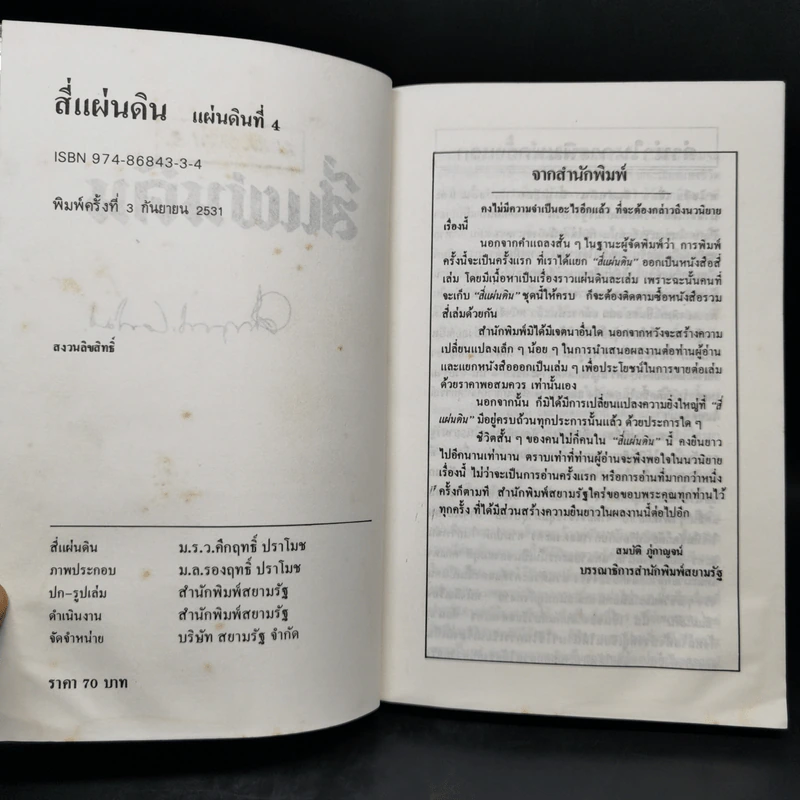 สี่แผ่นดิน แผ่นดินที่ 4
ISBN 974-86843-3-4
พิมพ์ครั้งที่ 3 กันยายน 2531
สงวนลิขสิทธิ์
สี่แผ่นดิน ม.ร.ว.คึกฤทธิ์ ปราโมช
ภาพประกอบ ม.ล.รองฤทธิ์ ปราโมช
ปก-รูปเล่ม สำนักพิมพ์สยามรัฐ
ดำเนินงาน สำนักพิมพ์สยามรัฐ
จัดจำหน่าย บริษัท สยามรัฐ จำกัด
ราคา 70 บาท
จากสำนักพิมพ์
คงไม่มีความจำเป็นอะไรอีกแล้ว ที่จะต้องกล่าวถึงนวนิยาย
เรื่องนี้
นอกจากคำแถลงสั้น ๆ ในฐานะผู้จัดพิมพ์ว่า การพิมพ์
ครั้งนี้จะเป็นครั้งแรก ที่เราได้แยก “สี่แผ่นดิน” ออกเป็นหนังสือสี่
เล่ม โดยมีเนื้อหาเป็นเรื่องราวแผ่นดินละเล่ม เพราะฉะนั้นคนที่
จะเก็บ “สี่แผ่นดิน” ชุดนี้ให้ครบ ก็จะต้องติดตามซื้อหนังสือรวม
สี่เล่มด้วยกัน
สำนักพิมพ์มิได้มีเจตนาอื่นใด นอกจากหวังจะสร้างความ
เปลี่ยนแปลงเล็ก ๆ น้อย ๆ ในการนำเสนอผลงานต่อท่านผู้อ่าน
และแยกหนังสือออกเป็นเล่ม ๆ เพื่อประโยชน์ในการขายต่อเล่ม
ด้วยราคาพอสมควร เท่านั้นเอง
นอกจากนั้น ก็มิได้มีการเปลี่ยนแปลงความยิ่งใหญ่ที่ “สี่
แผ่นดิน” มีอยู่ครบถ้วนทุกประการนั้นแล้ว ด้วยประการใด ๆ
ชีวิตสั้น ๆ ของคนไม่กี่คนใน “สี่แผ่นดิน” นี้ คงยืนยาว
ไปอีกนานเท่านาน ตราบเท่าที่ท่านผู้อ่านจะพึงพอใจในนวนิยาย
เรื่องนี้ ไม่ว่าจะเป็นการอ่านครั้งแรก หรือการอ่านที่มากกว่าหนึ่ง
ครั้งก็ตามที สำนักพิมพ์สยามรัฐใคร่ขอขอบพระคุณทุกท่านไว้
ทุกครั้ง ที่ได้มีส่วนสร้างความยืนยาวในผลงานนี้ต่อไปอีก
สมบัติ ภู่กาญจน์
บรรณาธิการสำนักพิมพ์สยามรัฐ